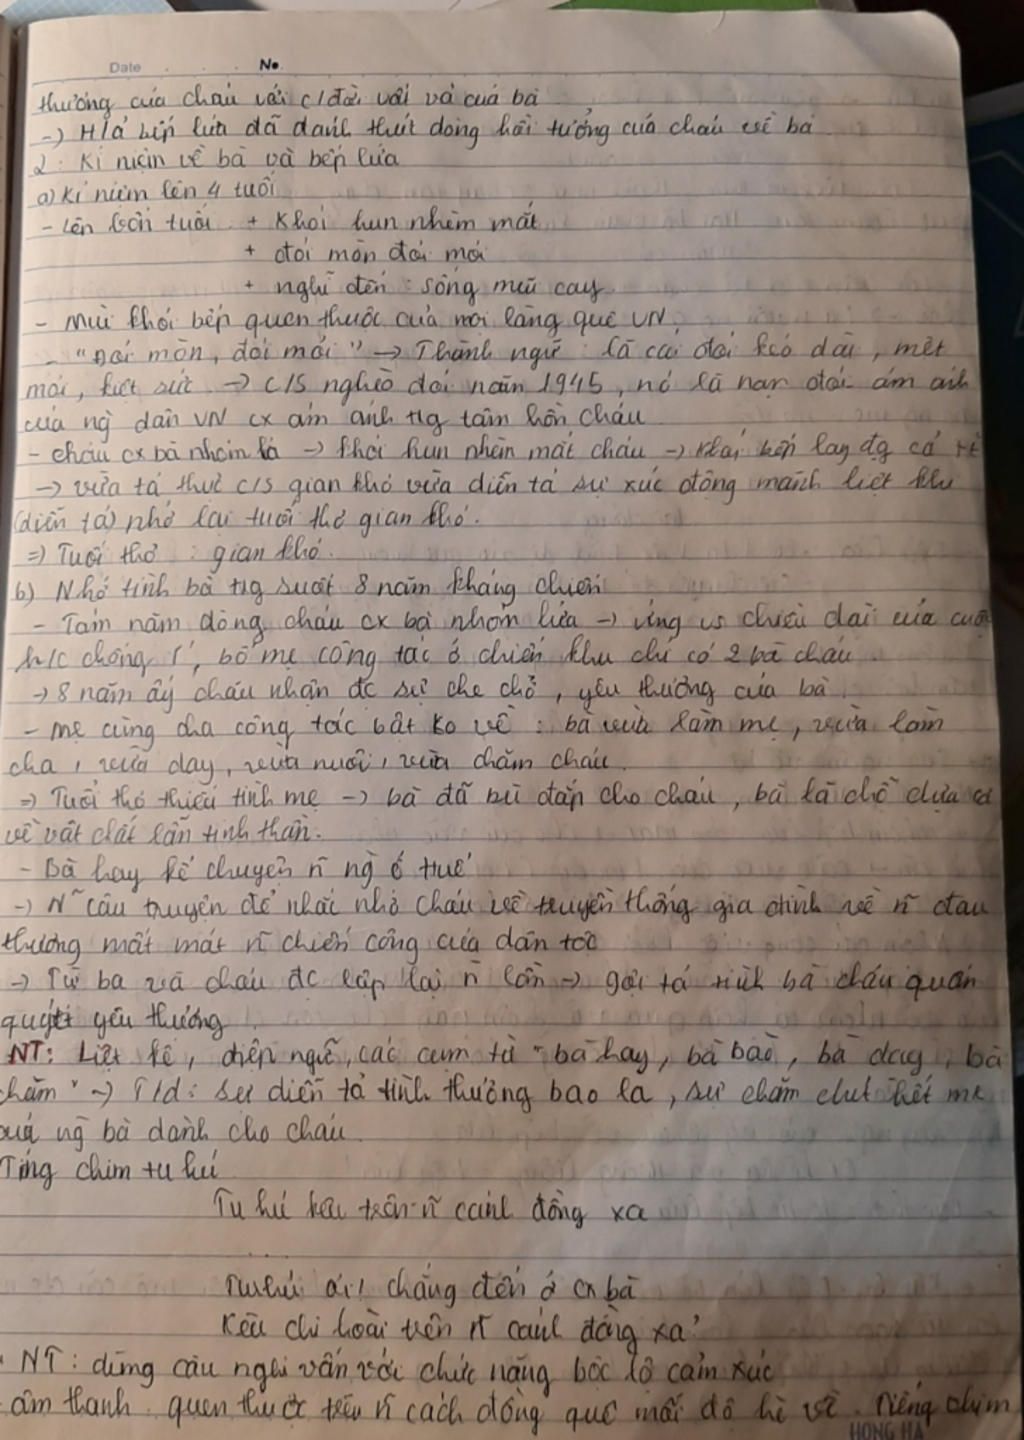 Date No
thương của cháu với c/đời vất vả của bà
-) H/ả bếp lửa đã đánh thức dòng hồi tưởng của cháu về bà
2. Kỉ niệm về bà và bếp lửa
a) Kỉ niệm lên 4 tuổi
- Lên bốn tuổi : + Khói hun nhèm mắt
+ đói mòn đói mỏi
+ nghĩ đến : sống mũi cay
- Mùi khói bếp quen thuộc của mọi làng quê VN.
- "Đói mòn, đói mỏi" -> Thành ngữ : là cái đói kéo dài, mệt
mỏi, kiệt sức -> c/s nghèo đói năm 1945, nó là nạn đói ám ảnh
của ng dân VN cx ám ảnh tg tâm hồn cháu
- cháu cx bà nhóm -> khói hun nhèm mắt cháu -> khói bếp lay đg cả
-> vừa tả thực c/s gian khó vừa diễn tả sự xúc động mãnh liệt khi
(diễn tả) nhớ lại tuổi thơ gian khó.
=> Tuổi thơ : gian khó.
b) Nhớ tình bà tg suốt 8 năm kháng chiến
- Tám năm dòng cháu cx bà nhóm lửa -> ứng vs chiều dài của cuộc
k/c chống P', bố mẹ công tác ở chiến khu chỉ có 2 bà cháu.
-> 8 năm ấy cháu nhận đc sự che chở, yêu thương của bà.
- Mẹ cùng cha công tác bật ko về : bà vừa làm mẹ, vừa làm
cha, vừa dạy, vừa nuôi, vừa chăm cháu.
=> Tuổi thơ thiếu tình mẹ -> bà đã bù đắp cho cháu, bà là chỗ dựa cả
về vật chất lẫn tinh thần.
- Bà hay kể chuyện n~ ng ở Huế
-> N~ câu truyện để nhắc nhở cháu về truyền thống gia đình về n~ đau
thương mất mát n~ chiến công của dân tộc
-> Từ bà và cháu đc lặp lại n lần -> gợi tả tình bà cháu quấn
quýt yêu thương
NT: Liệt kê, điệp ngữ, các cụm từ "bà hay, bà bảo, bà dạy, bà
chăm" -> T/d : sự diễn tả tình thương bao la, sự chăm chút hết mk
của ng bà dành cho cháu.
Tiếng chim tu hú
Tu hú kêu trên n~ cánh đồng xa
Tu hú ơi! chẳng đến ở cx bà
Kêu chi hoài trên n~ cánh đồng xa?
NT: dùng câu nghi vấn với chức năng bộc lộ cảm xúc
âm thanh quen thuộc trên n~ cách đồng quê mỗi độ hè về. Tiếng chim
HONG HA